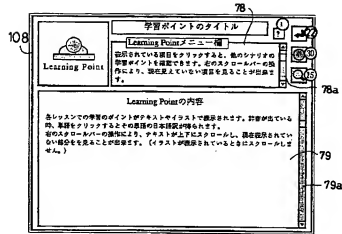 学習ポイントのタイトル
78
1
?
22
108
Learning Pointメニュー欄
表示されている項目をクリックすると、他のシナリオの
学習ポイントを確認できます。右のスクロールバーの操
作により、現在見えていない項目を見ることが出来ま
す。
30
25
Learning Point
78a
Learning Pointの内容
各レッスンでの学習のポイントがテキストやイラストで表示されます。許音が出ている
時、単語をクリックするとその単語の日本語訳が得られます。
右のスクロールバーの操作により、テキストが上下にスクロールし、現在表示されてい
ない部分をを見ることが出来ます。（イラストが表示されているときにスクロールしま
せん。）
79
79a